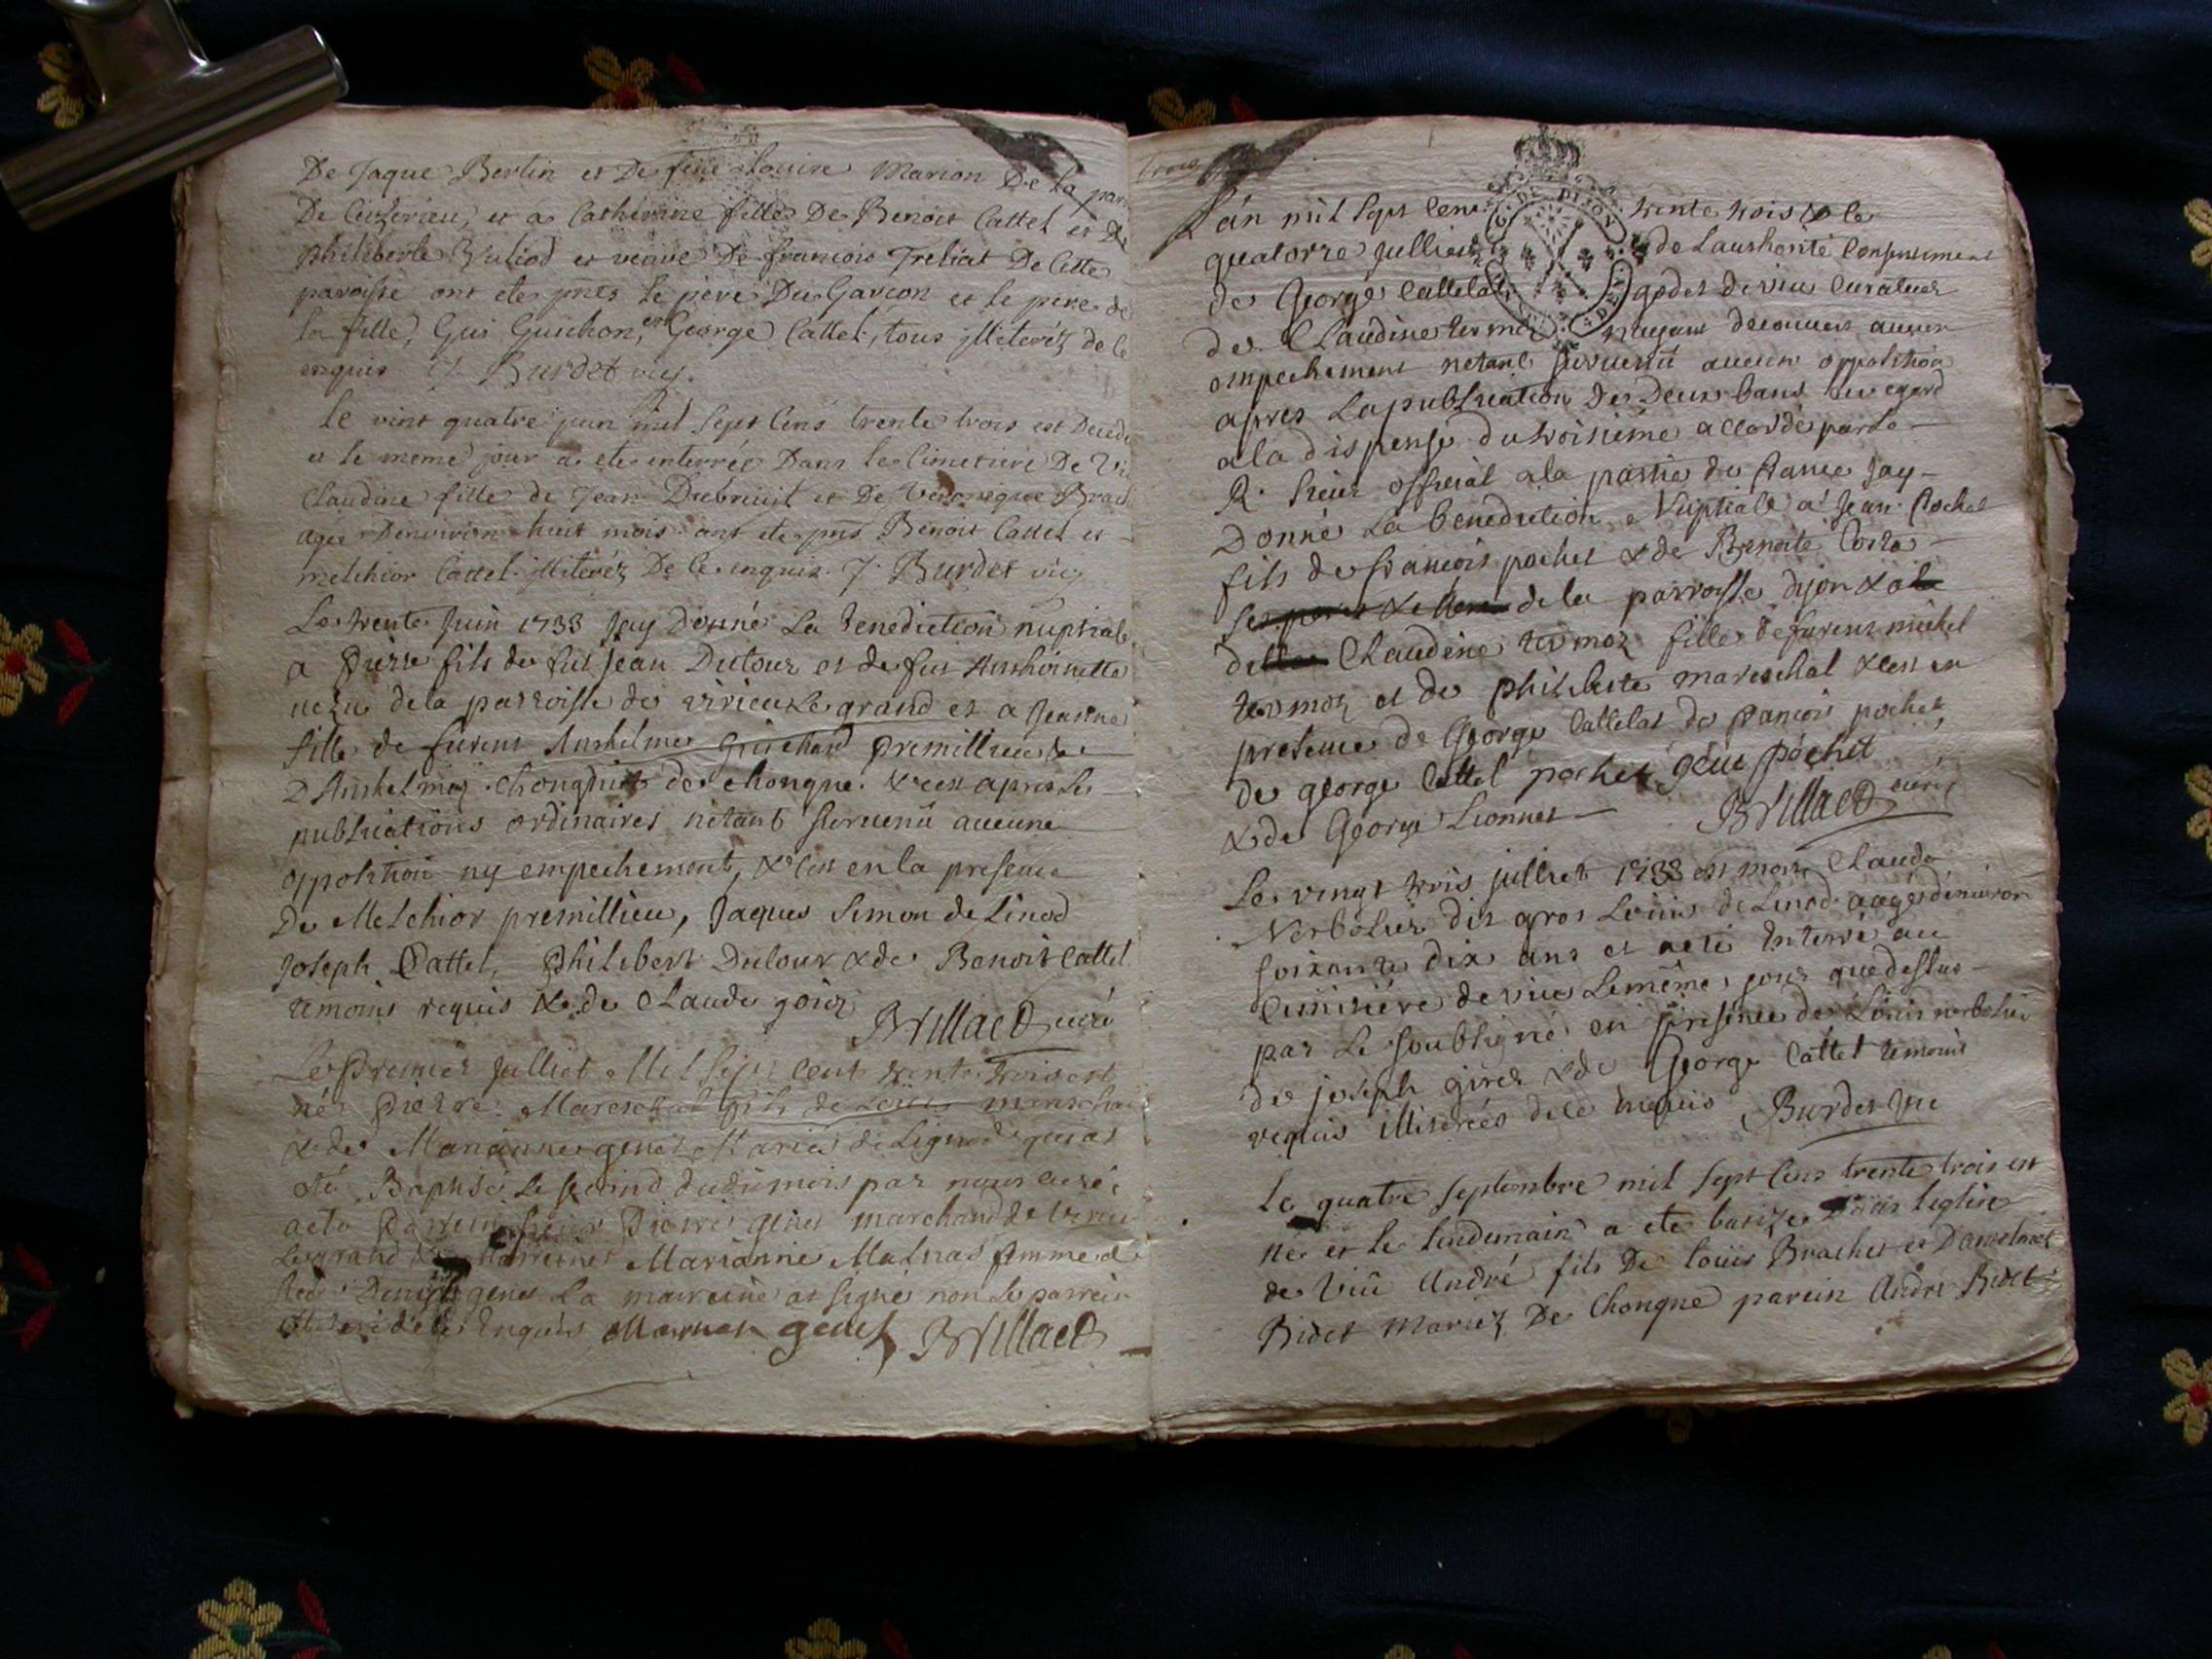 De Jaque Bertin et De feüe Louise Marion De la par
De Ceizerieu, et a Catherine fille De Benoit Cattel et De
philiberte Buliod et veuve De francois Treliat De Cette
paroisse ont ete pnts le pere Du Garcon et le pere de
la fille, Gui Guichon, et George Cattel, tous illiterez de ce
enquis J. Burdet vic.
le vint quatre juin mil sept cens trente trois est Decede
et le meme jour a ete enterrée Dans le Cimetiere De Vi
Claudine fille de Jean Dubruit et De Veronique Brach
agée Denviron huit mois ont ete pnts Benoit Cattel et
melchior Cattel illiterez De ce enquis J. Burdet vic
Le trente Juin 1733 Jay Donné La Benediction nuptiale
a pierre fils de fut Jean Dutour et de fut Anthoinette
de la parroisse de virieu Le grand et a Jeanne
fille de furent Anthelme Guichard premillieu &
D'Anthelmaz de Chongne. & ce apres Les
publications ordinaires netant survenü aucune
opposition ny empechement, & ce en la presence
De Melchior premillieu, Jaques Simon de Linod
Joseph Cattel, Philibert Dutour & de Benoit Cattel
temoins requis & de Claude goiez
Brillaed curé
Le premier Julliet Mil Sept cent trente trois est
né Pierre Mareschal fils de Loüis mareschal
& de Marianne genet Mariés de Lignod qui at
eté Baptisé Le second dudit mois par nous curé
a eté parrein sieur Pierre genet marchand de Virieu
Le grand & Marreine Marianne femme d
genet La marreine at signé non Le parrein
de ce Enquis genet Brillaed
trois
L'an mil sept cent trente trois & le
quatorze julliet de Lauthorité Consentiment
de George Cattelat de viu Curateur
de Claudine termoz nayant decouvert aucun
empechement netant survenü aucun opposition
apres La publication De Deux bans Eu egard
a la dispense du troisieme accordé par Le
R. sieur official a la partie de france Jay
Donné La benediction Nuptiale a Jean pochet
fils de francois pochet & de Benoite Costa
de la parroisse dyon & a
Claudine termoz fille de furent michel
termoz et de philiberte mareschal & ce en
presence de George Cattelat de francois pochet
de george Cattel pochet pochet
& de George Lionnet Brillaed curé
Le vingt trois julliet 1733 est mort Claude
Nerbolier dit gros Loüis de Linod aagé denviron
soixante dix ans et a eté Enterré au
Cimitiére de viu Le même jour que dessus
par Le soubsigné en presence de Loüis nerbolier
de joseph girer & de George Cattel temoins
requis illiterés de ce Enquis Burdet vic
le quatre septembre mil sept cens trente trois est
né et le lendemain a ete batize Dans leglise
de Viü André fils De Louis Brachet et Danthelmet
Bidet mariez De Chongne parein André Bidet